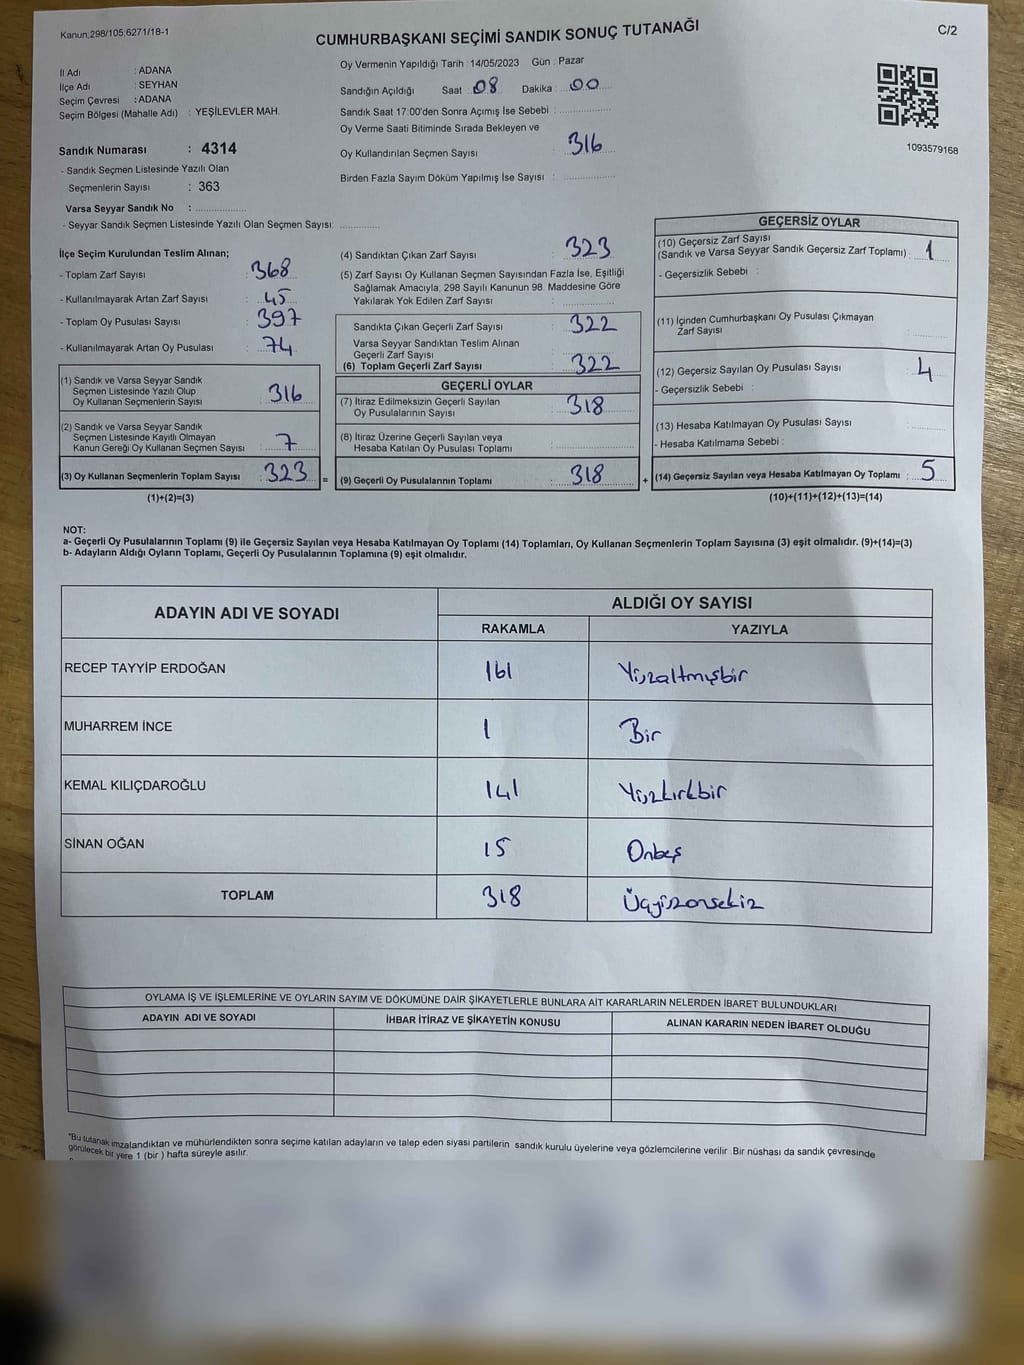 Kanun;298/105;6271/18-1
CUMHURBAŞKANI SEÇİMİ SANDIK SONUÇ TUTANAĞI
C/2
İl Adı : ADANA
İlçe Adı : SEYHAN
Seçim Çevresi : ADANA
Seçim Bölgesi (Mahalle Adı) : YEŞİLEVLER MAH.
Sandık Numarası : 4314
- Sandık Seçmen Listesinde Yazılı Olan
Seçmenlerin Sayısı : 363
Varsa Seyyar Sandık No :
- Seyyar Sandık Seçmen Listesinde Yazılı Olan Seçmen Sayısı:
Oy Vermenin Yapıldığı Tarih : 14/05/2023 Gün : Pazar
Sandığın Açıldığı Saat : 08 Dakika : 00
Sandık Saat 17:00'den Sonra Açımış İse Sebebi :
Oy Verme Saati Bitiminde Sırada Bekleyen ve
Oy Kullandırılan Seçmen Sayısı : 316
Birden Fazla Sayım Döküm Yapılmış İse Sayısı :
1093579168
İlçe Seçim Kurulundan Teslim Alınan;
- Toplam Zarf Sayısı : 368
- Kullanılmayarak Artan Zarf Sayısı : 45
- Toplam Oy Pusulası Sayısı : 397
- Kullanılmayarak Artan Oy Pusulası : 74
(1) Sandık ve Varsa Seyyar Sandık
Seçmen Listesinde Yazılı Olup
Oy Kullanan Seçmenlerin Sayısı : 316
(2) Sandık ve Varsa Seyyar Sandık
Seçmen Listesinde Kayıtlı Olmayan
Kanun Gereği Oy Kullanan Seçmen Sayısı : 7
(3) Oy Kullanan Seçmenlerin Toplam Sayısı : 323
(1)+(2)=(3)
(4) Sandıktan Çıkan Zarf Sayısı : 323
(5) Zarf Sayısı Oy Kullanan Seçmen Sayısından Fazla İse, Eşitliği
Sağlamak Amacıyla, 298 Sayılı Kanunun 98. Maddesine Göre
Yakılarak Yok Edilen Zarf Sayısı :
Sandıkta Çıkan Geçerli Zarf Sayısı : 322
Varsa Seyyar Sandıktan Teslim Alınan
Geçerli Zarf Sayısı :
(6) Toplam Geçerli Zarf Sayısı : 322
GEÇERLİ OYLAR
(7) İtiraz Edilmeksizin Geçerli Sayılan
Oy Pusulalarının Sayısı : 318
(8) İtiraz Üzerine Geçerli Sayılan veya
Hesaba Katılan Oy Pusulası Toplamı :
= (9) Geçerli Oy Pusulalarının Toplamı : 318
GEÇERSİZ OYLAR
(10) Geçersiz Zarf Sayısı
(Sandık ve Varsa Seyyar Sandık Geçersiz Zarf Toplamı) : 1
- Geçersizlik Sebebi :
(11) İçinden Cumhurbaşkanı Oy Pusulası Çıkmayan
Zarf Sayısı :
(12) Geçersiz Sayılan Oy Pusulası Sayısı : 4
- Geçersizlik Sebebi :
(13) Hesaba Katılmayan Oy Pusulası Sayısı :
- Hesaba Katılmama Sebebi :
+ (14) Geçersiz Sayılan veya Hesaba Katılmayan Oy Toplamı : 5
(10)+(11)+(12)+(13)=(14)
NOT:
a- Geçerli Oy Pusulalarının Toplamı (9) ile Geçersiz Sayılan veya Hesaba Katılmayan Oy Toplamı (14) Toplamları, Oy Kullanan Seçmenlerin Toplam Sayısına (3) eşit olmalıdır. (9)+(14)=(3)
b- Adayların Aldığı Oyların Toplamı, Geçerli Oy Pusulalarının Toplamına (9) eşit olmalıdır.
ADAYIN ADI VE SOYADI
ALDIĞI OY SAYISI
RAKAMLA YAZIYLA
RECEP TAYYİP ERDOĞAN 161 Yüzaltmışbir
MUHARREM İNCE 1 Bir
KEMAL KILIÇDAROĞLU 141 Yüzkırkbir
SİNAN OĞAN 15 Onbeş
TOPLAM 318 Üçyüzonsekiz
OYLAMA İŞ VE İŞLEMLERİNE VE OYLARIN SAYIM VE DÖKÜMÜNE DAİR ŞİKAYETLERLE BUNLARA AİT KARARLARIN NELERDEN İBARET BULUNDUKLARI
ADAYIN ADI VE SOYADI İHBAR İTİRAZ VE ŞİKAYETİN KONUSU ALINAN KARARIN NEDEN İBARET OLDUĞU
*Bu tutanak imzalandıktan ve mühürlendikten sonra seçime katılan adayların ve talep eden siyasi partilerin sandık kurulu üyelerine veya gözlemcilerine verilir. Bir nüshası da sandık çevresinde
görülecek bir yere 1 (bir ) hafta süreyle asılır.